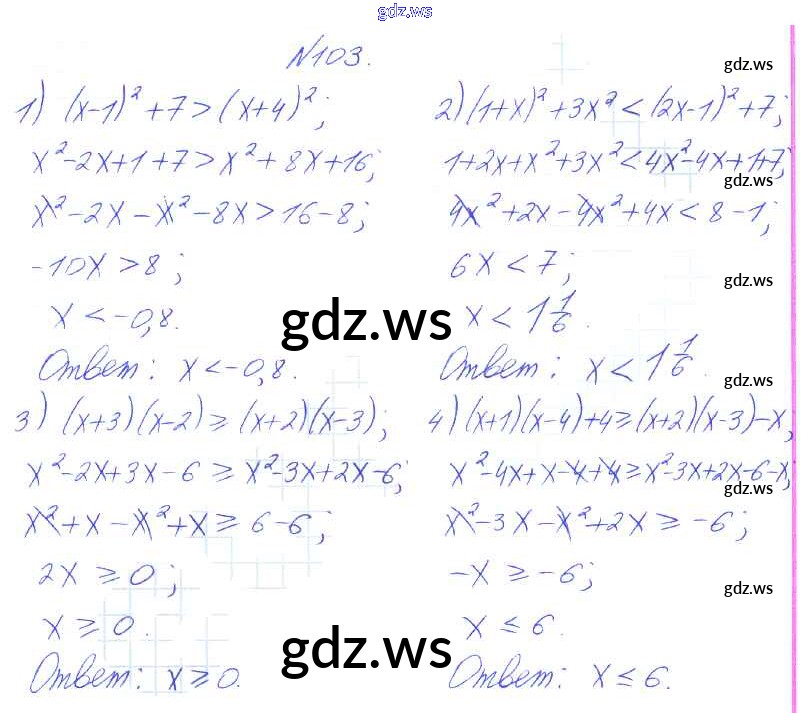 gdz.ws
N103.
gdz.ws
1) (x-1)² + 7 > (x+4)²;
x² - 2x + 1 + 7 > x² + 8x + 16;
x² - 2x - x² - 8x > 16 - 8;
-10x > 8;
x < -0,8.
Ответ: x < -0,8.
2) (1+x)² + 3x² < (2x-1)² + 7;
1 + 2x + x² + 3x² < 4x² - 4x + 1 + 7;
gdz.ws
4x² + 2x - 4x² + 4x < 8 - 1;
6x < 7;
gdz.ws
x < 1 1/6.
gdz.ws
Ответ: x < 1 1/6.
gdz.ws
3) (x+3)(x-2) ≥ (x+2)(x-3);
x² - 2x + 3x - 6 ≥ x² - 3x + 2x - 6;
x² + x - x² + x ≥ 6 - 6;
2x ≥ 0;
x ≥ 0.
Ответ: x ≥ 0.
4) (x+1)(x-4) + 4 ≥ (x+2)(x-3) - x;
x² - 4x + x - 4 + 4 ≥ x² - 3x + 2x - 6 - x;
gdz.ws
x² - 3x - x² + 2x ≥ -6;
-x ≥ -6;
gdz.ws
x ≤ 6.
gdz.ws
Ответ: x ≤ 6.